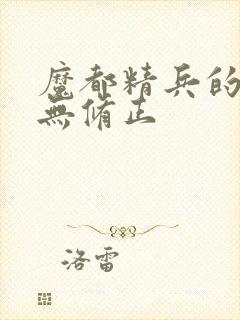 魔都精兵的
無修正
洛雷